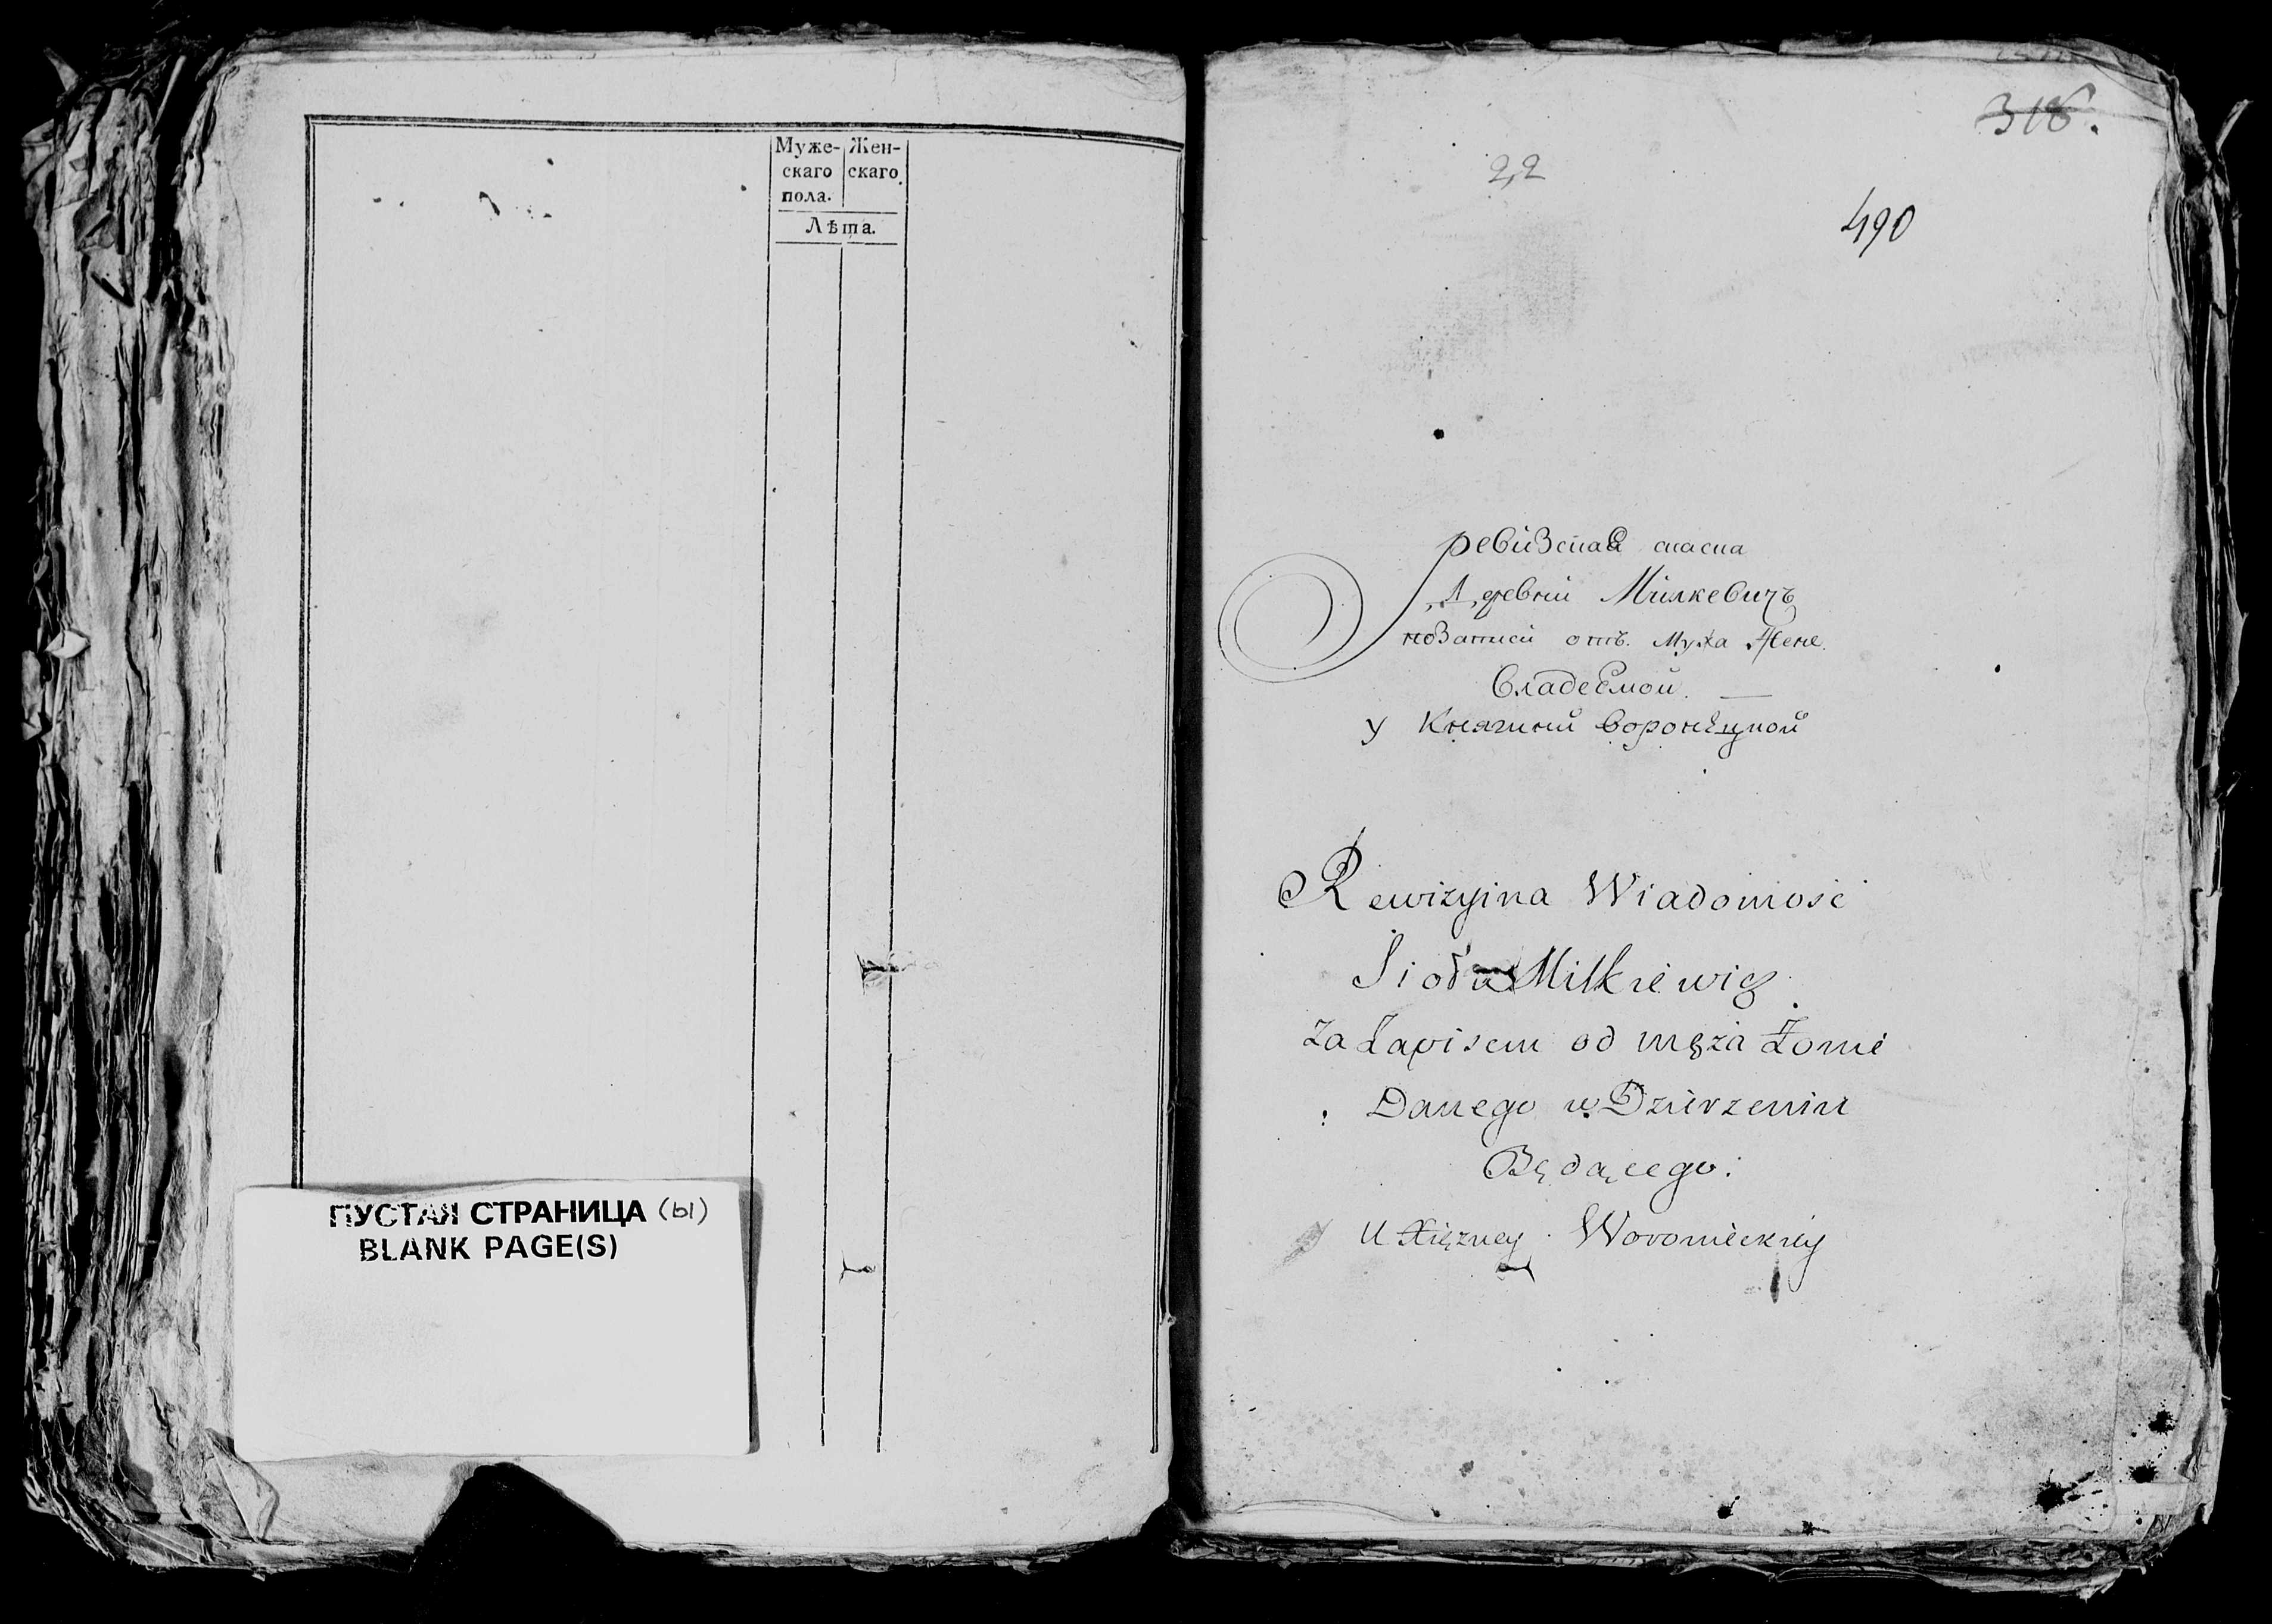 Муже- Жен-
скаго скаго
пола.
Лѣта.
ПУСТАЯ СТРАНИЦА (ы)
BLANK PAGE(S)
318.
22
490
ревизская скаска
Деревни Милкевичъ
по записи отъ мужа Жене
владеемой
у Княгини воронецкой
Rewizyina Wiadomość
Sioła Milkiewicz
za Zapisem od męża Żonie
Danego w Dzierzeniu
Będącego:
U Xiężney Woronieckiey